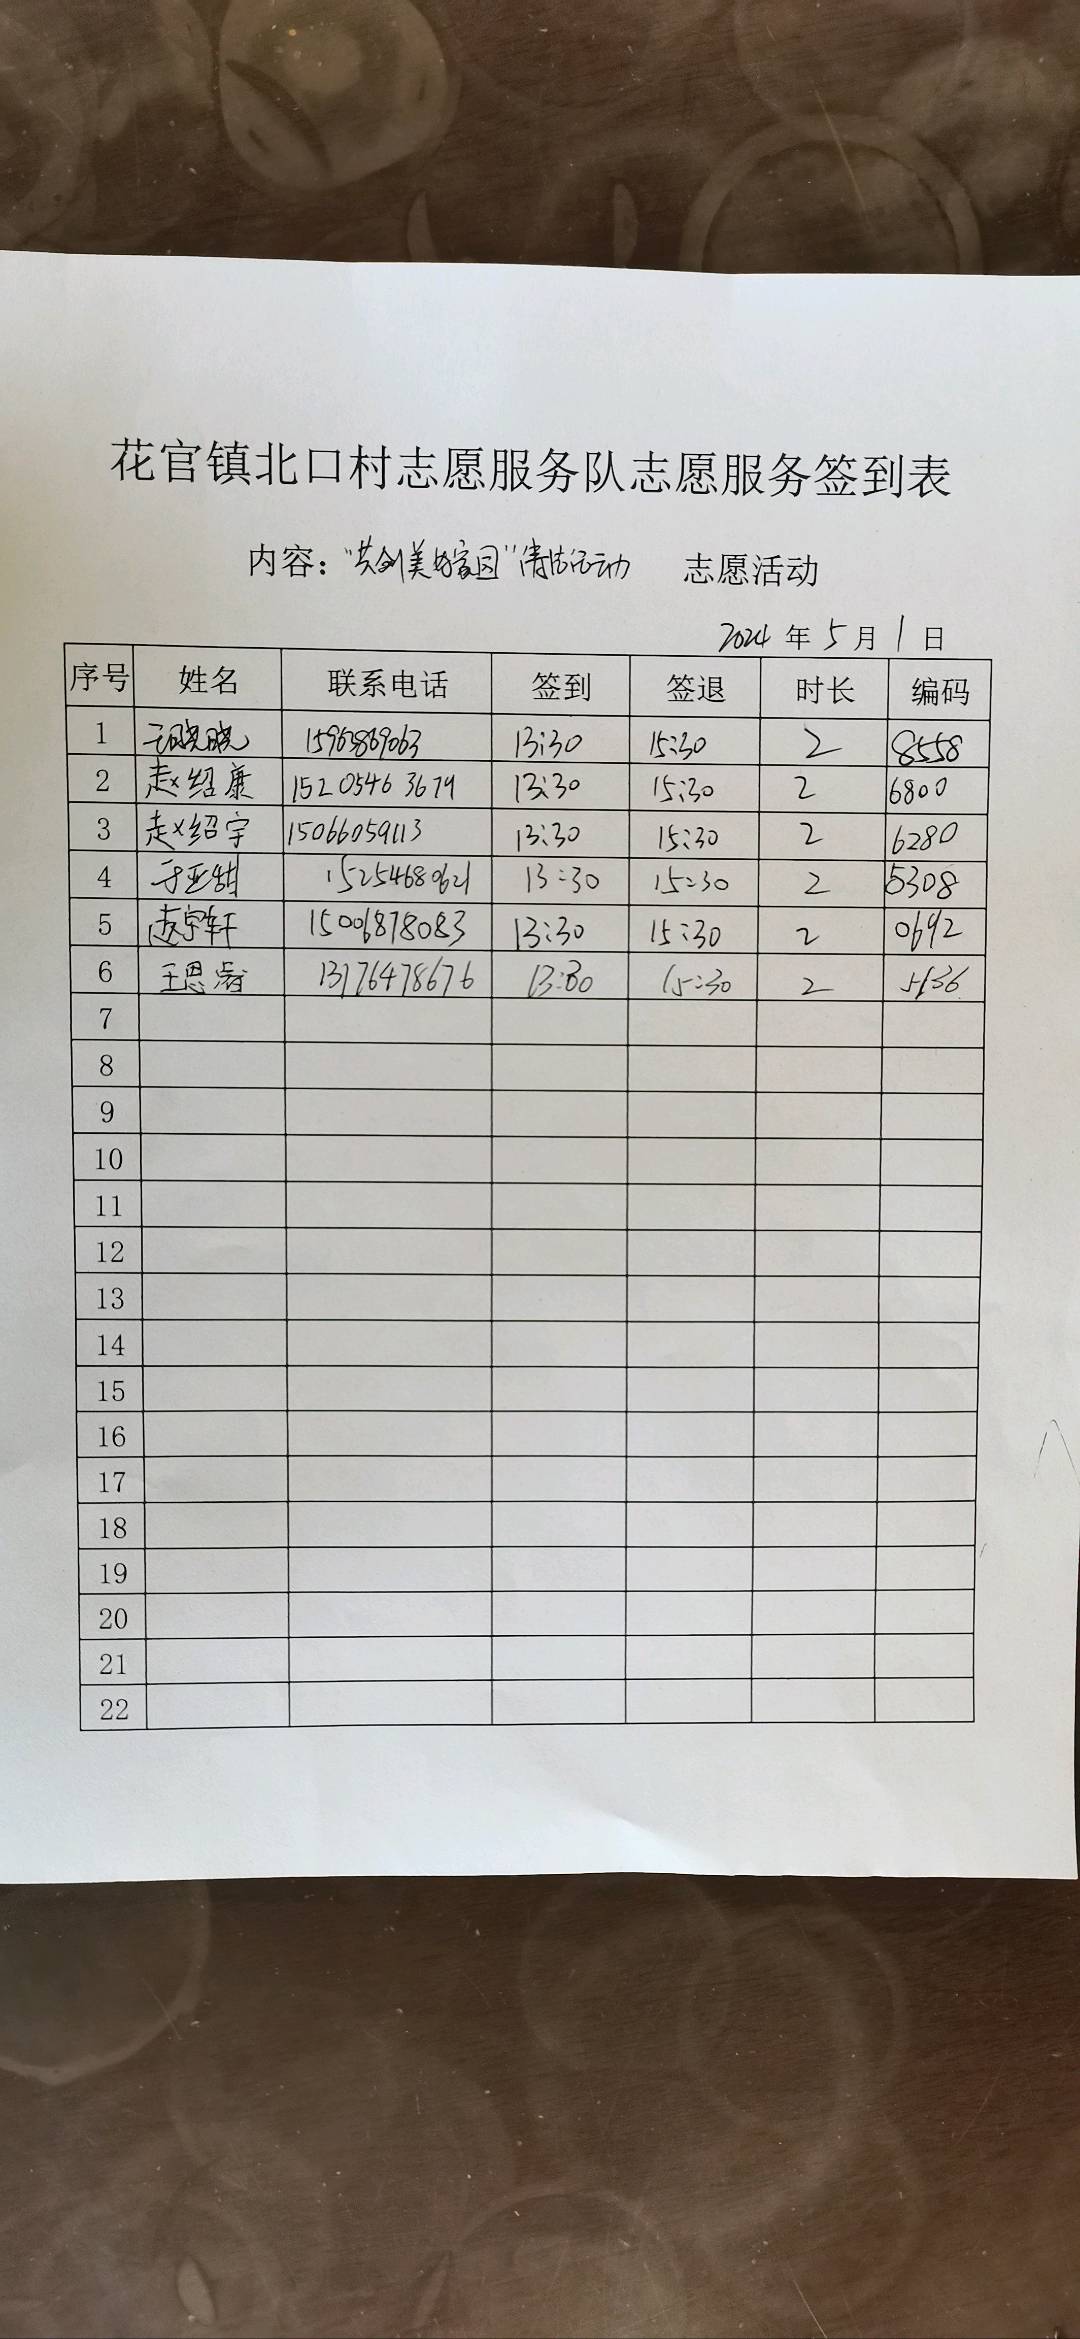 花官镇北口村志愿服务队志愿服务签到表
内容：“共创美好家园”清洁活动 志愿活动
2024 年 5 月 1 日
序号 姓名 联系电话 签到 签退 时长 编码
1 晓晓 15963869063 13:30 15:30 2 8558
2 赵绍康 15205463679 13:30 15:30 2 6800
3 赵绍宇 15066059113 13:30 15:30 2 6280
4 于亚甜 15254680621 13:30 15:30 2 5308
5 赵宇轩 15006878083 13:30 15:30 2 0692
6 王恩睿 13176478676 13:30 15:30 2
7
8
9
10
11
12
13
14
15
16
17
18
19
20
21
22